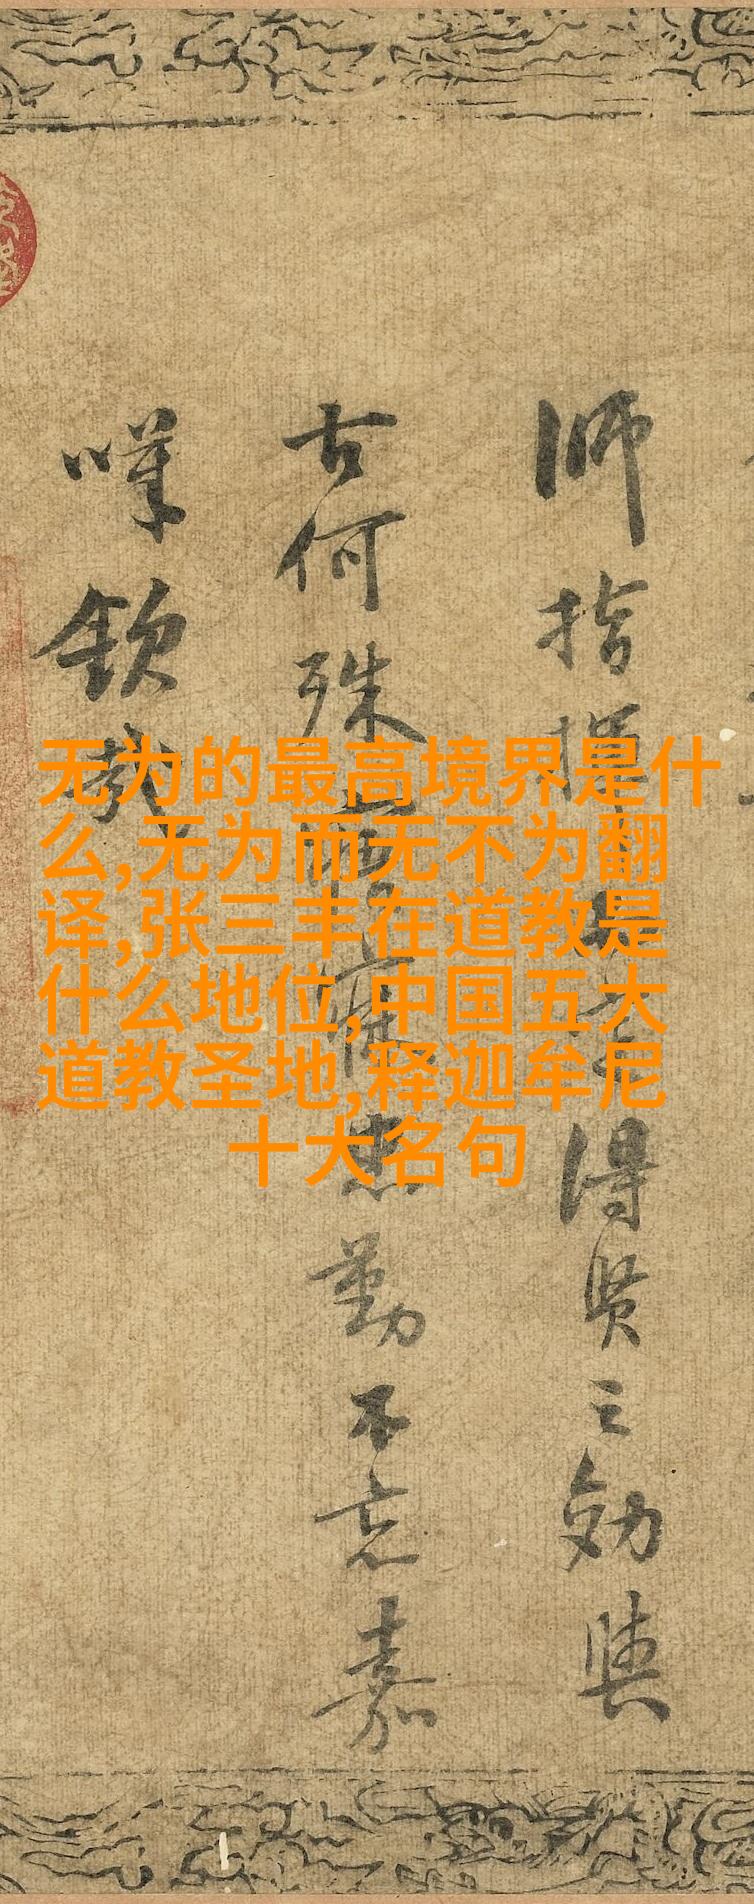 无为的最高境界是什
么,无为而无不为翻
译,张三丰在道教是
什么地位,中国五大
道教圣地,释迦牟尼
十大名句
師指揮得賢之効與
古何殊忠勤不忘嘉
嘆欽哉